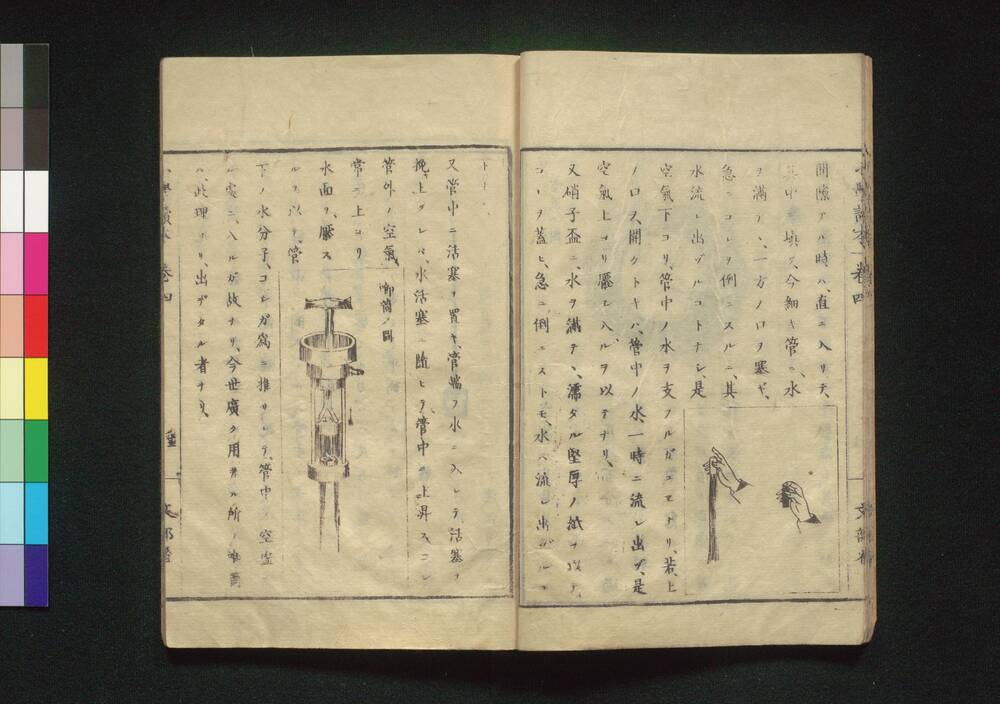 間隙アル時ハ、直ニ入リテ、
其中ニ填ツ、今細キ管ニ、水
ヲ満テ、一方ノ口ヲ塞ギ、
急ニコレヲ倒ニスルニ、其
水流レ出ヅルコトナシ、是
空氣下ヨリ、管中ノ水ヲ支フルガユエナリ、若、上
ノ口ヲ開クトキハ、管中ノ水、一時ニ流レ出ヅ、是
空氣上ヨリ壓シ入ルヲ以テナリ、
又硝子盃ニ、水ヲ満テ、濡タル堅厚ノ紙ヲ以テ、
コレヲ蓋ヒ、急ニ倒ニストモ、水ハ流レ出ヅルコ
トナ
又管中ニ活塞ヲ置キ、管端ヲ水ニ入レテ活塞ヲ
挽上グレバ、水活塞ニ隨ヒテ、管中ヲ上昇スコレ
管外ノ空氣、
常ニ上ヨリ
水面ヲ、壓ス
ルヲ以テ、管
喞筒ノ圖
下ノ水分子、コレガ爲ニ推サレテ、管中ノ空虚
ノ處ニ、入ルガ故ナリ、今世廣ク用ヰル所ノ
ハ、此理ヨリ、出デタル者ナリ、
小學讀本 卷四
文部省
小學讀本 卷四
文部省